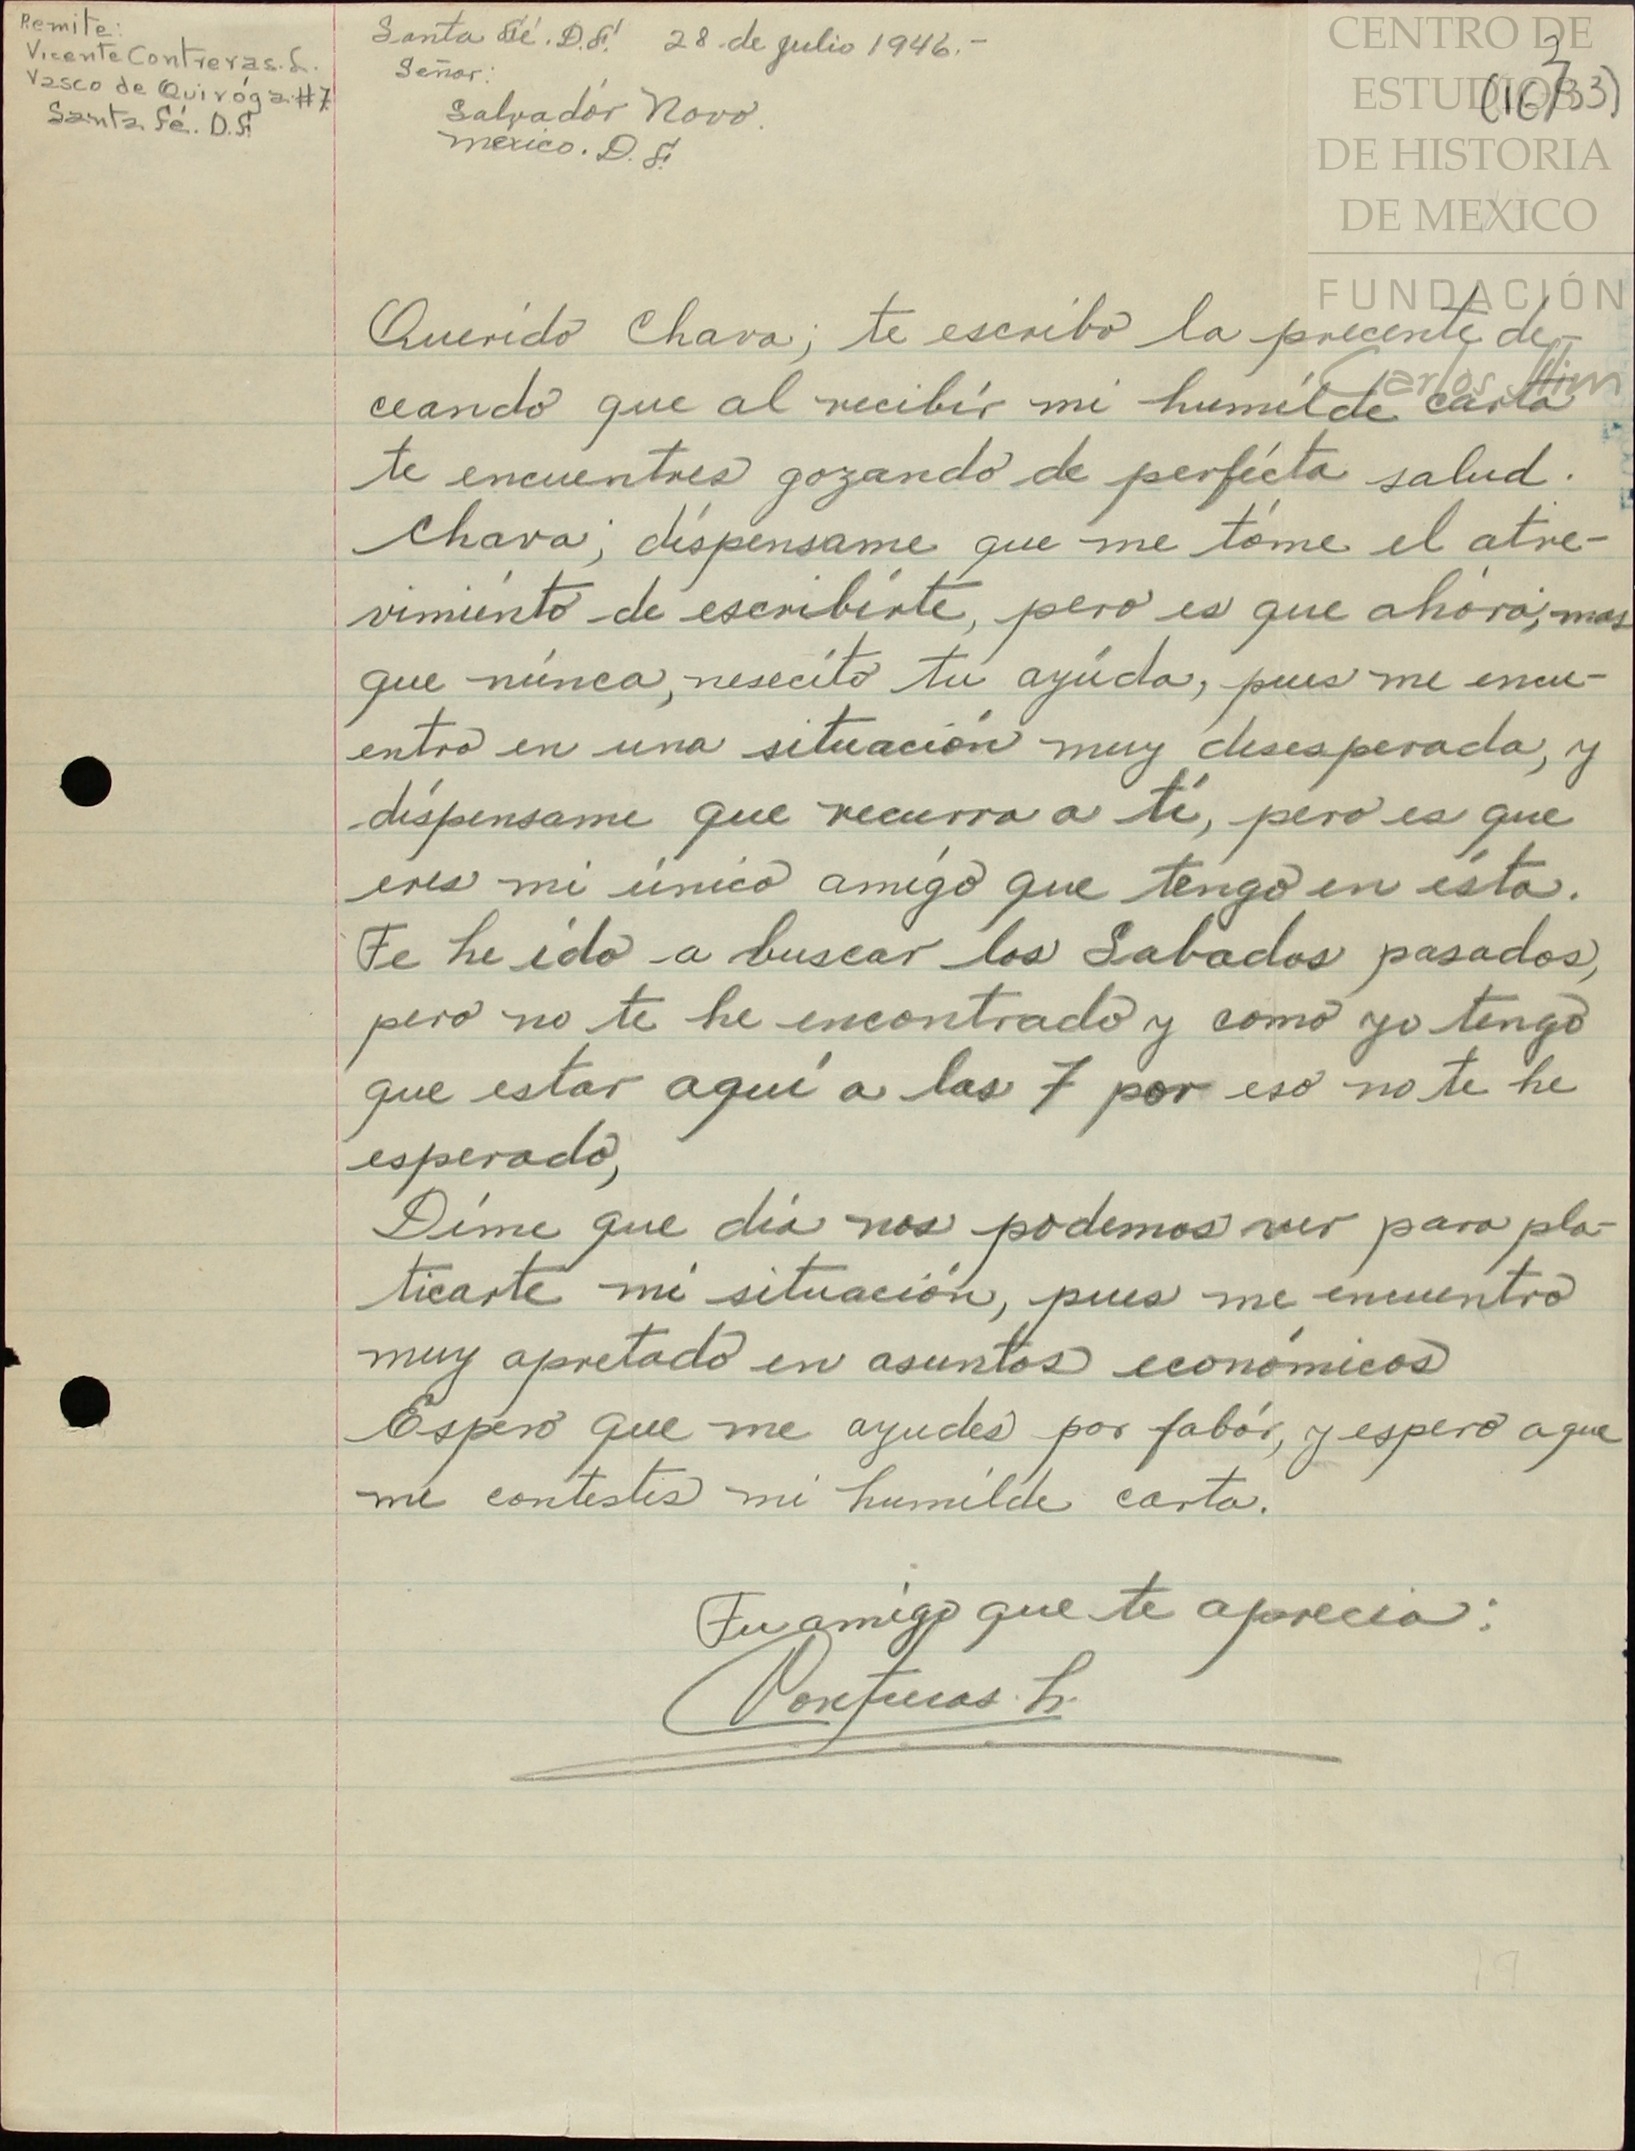 Remite:
Vicente Contreras. L.
Vasco de Quiróga #7
Santa Fé. D.F.
Santa Fé. D.F. 28 de julio 1946.-
Señor:
Salvadór Novo.
mexico. D.F.
2
(16/33)
CENTRO DE
ESTUDIOS
DE HISTORIA
DE MEXICO
FUNDACIÓN
Carlos Slim
Querido Chava; te escribo la precente de-
ceando que al recibír mi humílde carta
te encuentres gozando de perfécta salud.
Chava; díspensame que me tóme el atre-
vimiénto de escribírte, pero es que ahóra, mas
que núnca, nesecíto tu ayúda, pues me encu-
entro en una situación muy desesperada, y
díspensame que recurra a tí, pero es que
eres mi único amígo que téngo en ésta.
Te he ído a buscar los Sabados pasados,
pero no te he encontrado y como yo tengo
que estar aquí a las 7 por eso no te he
esperado,
Díme que día nos podemos ver para pla-
ticarte mi situación, pues me encuentro
muy apretado en asuntos económicos
Espero que me ayudes por fabór, y espero a que
me contestes mi humílde carta.
Tu amígo que te aprecia:
Contreras. L.
19